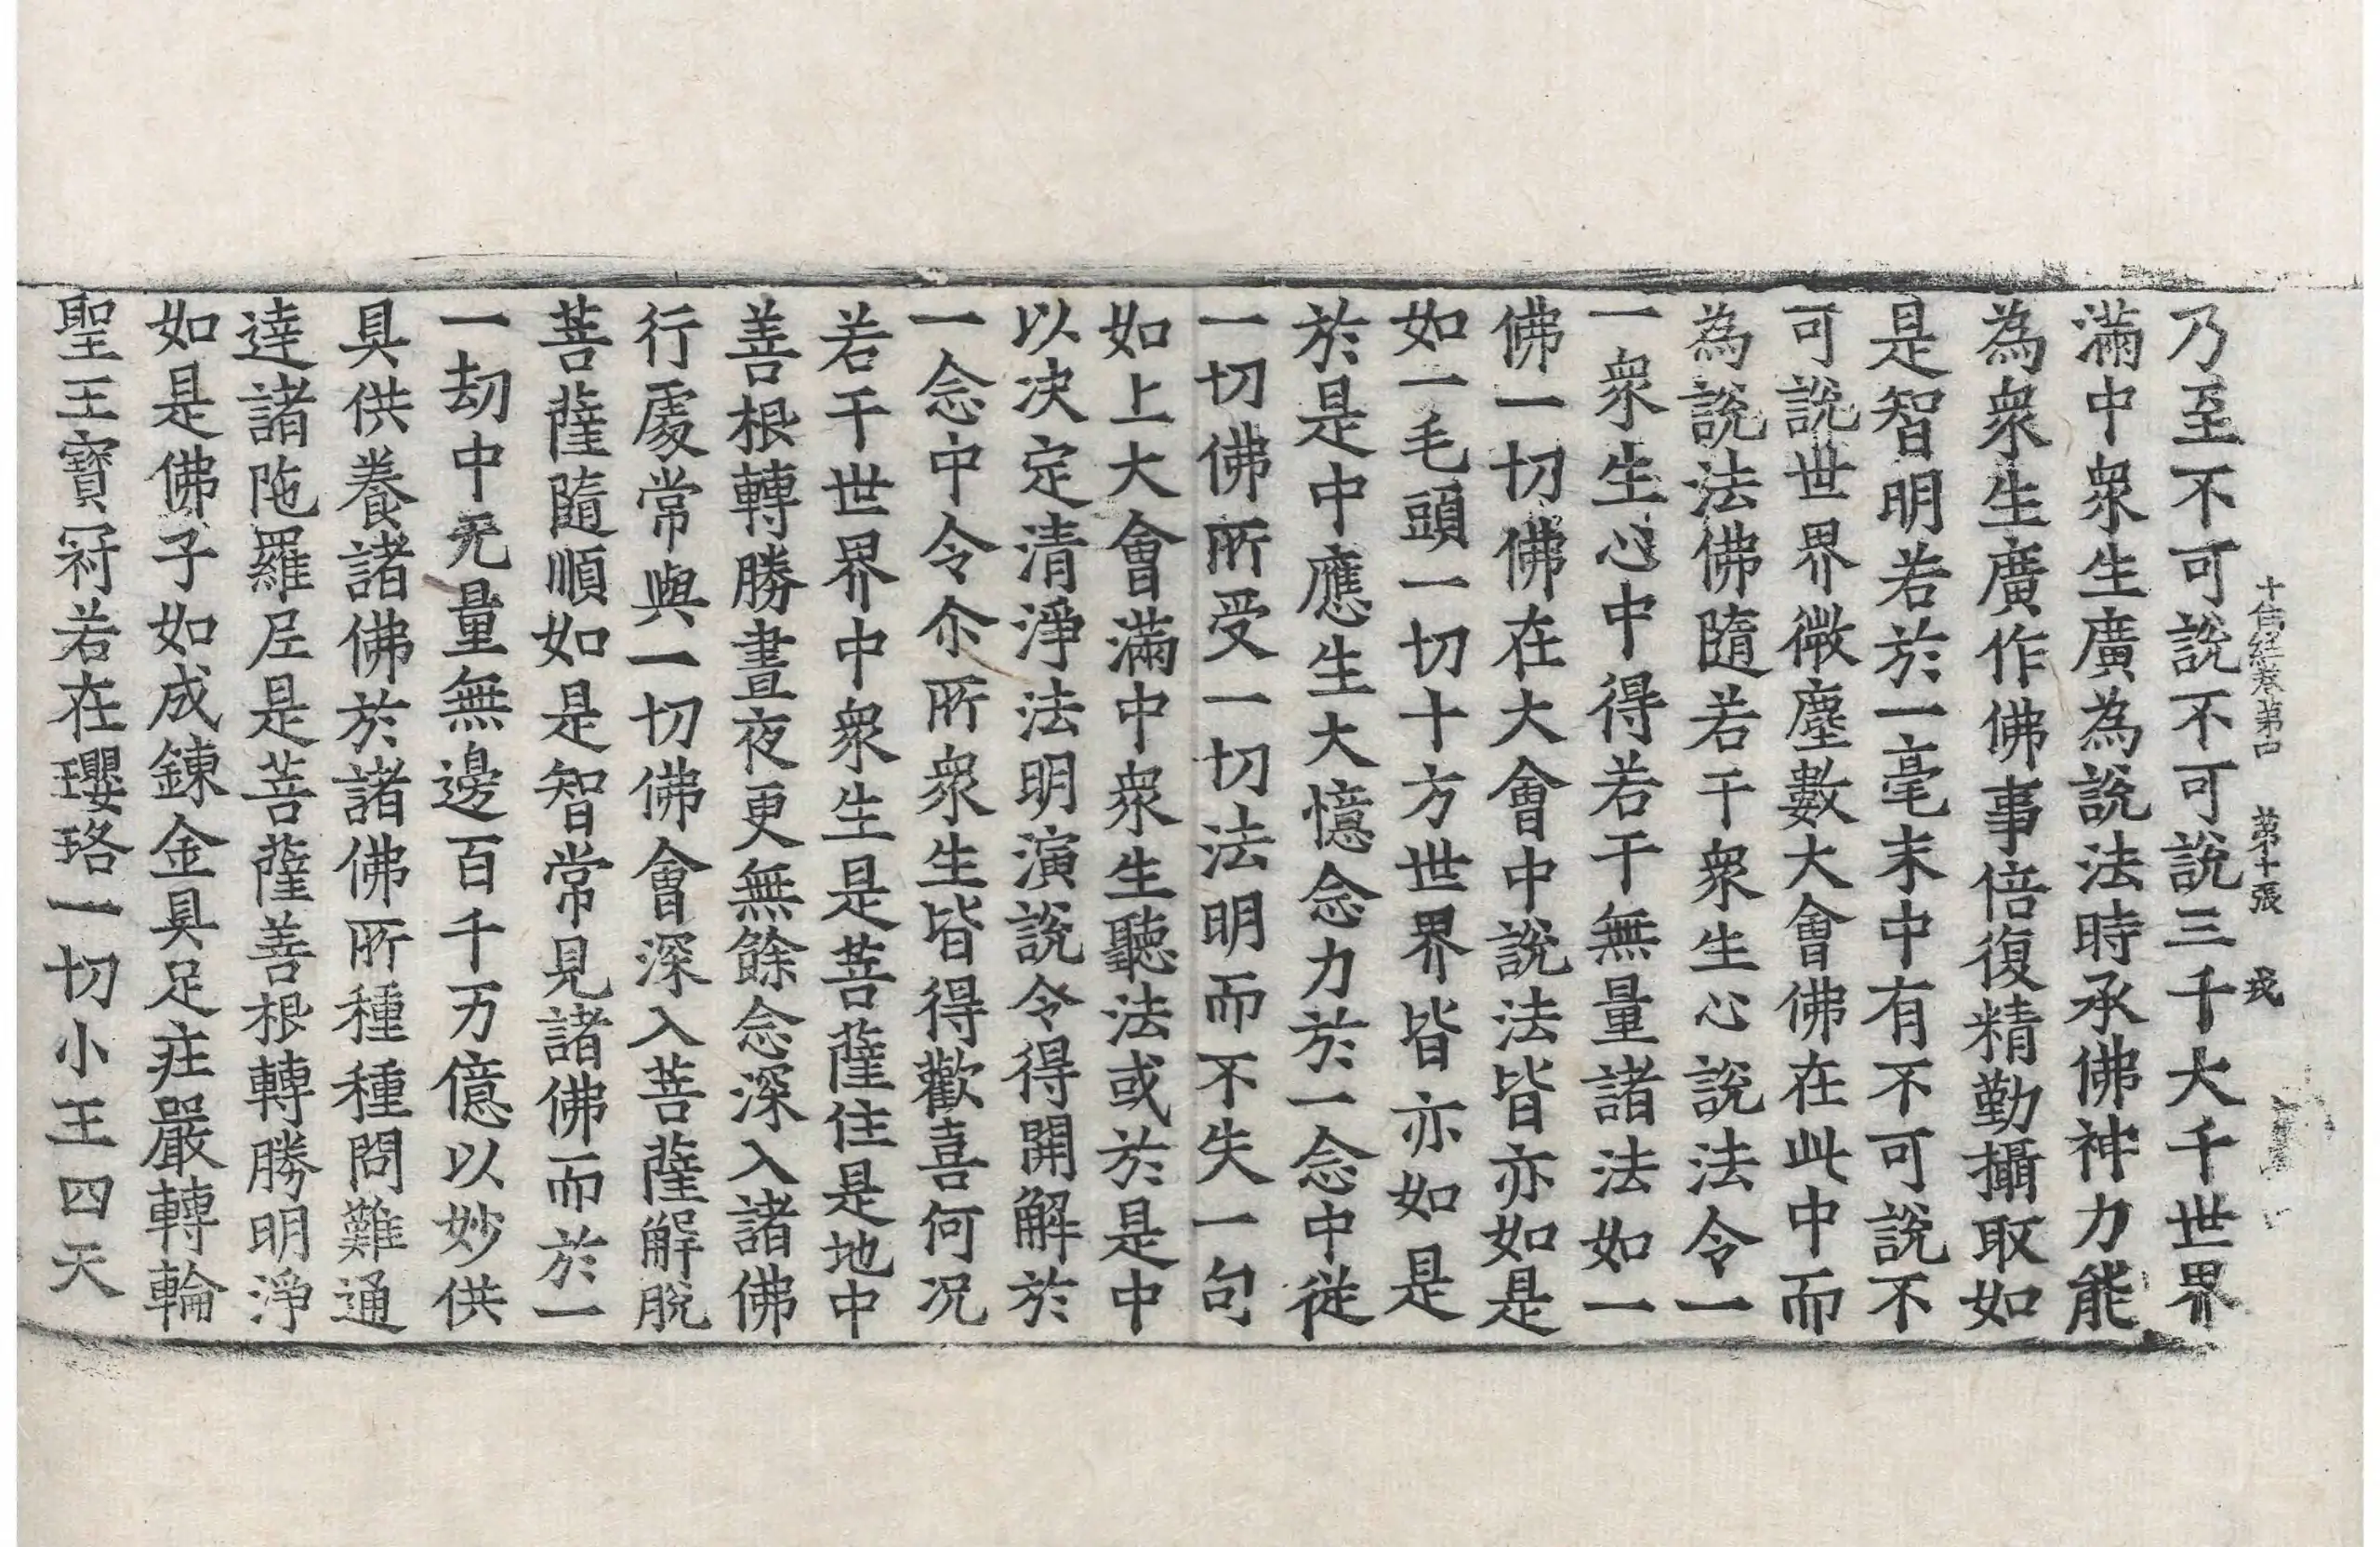 十住経卷第四 第十張 戎
乃至不可說不可說三千大千世界
滿中衆生廣為說法時承佛神力能
為衆生廣作佛事倍復精勤攝取如
是智明若於一毫末中有不可說不
可說世界微塵數大會佛在此中而
為說法佛隨若干衆生心說法令一
一衆生心中得若干無量諸法如一
佛一切佛在大會中說法皆亦如是
如一毛頭一切十方世界皆亦如是
於是中應生大憶念力於一念中從
一切佛所受一切法明而不失一句
如上大會滿中衆生聽法或於是中
以決定清淨法明演說令得開解於
一念中令尒所衆生皆得歡喜何況
若干世界中衆生是菩薩住是地中
善根轉勝晝夜更無餘念深入諸佛
行處常與一切佛會深入菩薩解脫
菩薩隨順如是智常見諸佛而於一
一劫中无量無邊百千万億以妙供
具供養諸佛於諸佛所種種問難通
達諸陁羅尼是菩薩善根轉勝明淨
如是佛子如成鍊金具足莊嚴轉輪
聖王寶冠若在瓔珞一切小王四天